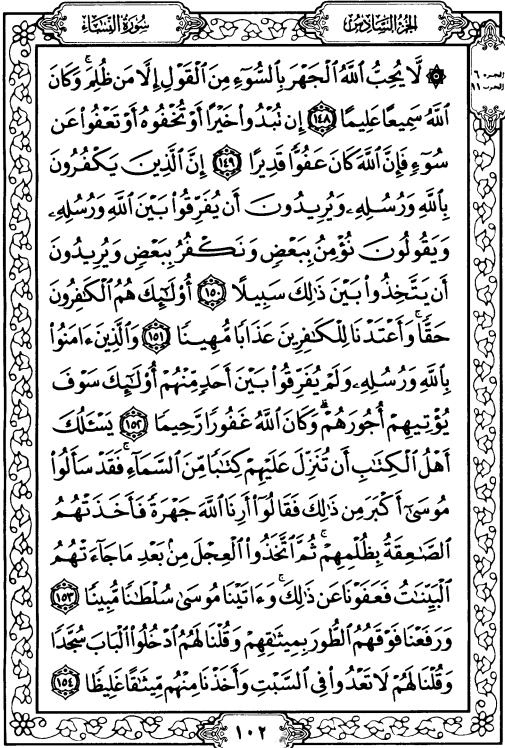 الجزء السادس
سورة النساء
الجزء ٦
الحزب ١١
۞ لَّا يُحِبُّ ٱللَّهُ ٱلْجَهْرَ بِٱلسُّوٓءِ مِنَ ٱلْقَوْلِ إِلَّا مَن ظُلِمَ ۚ وَكَانَ
ٱللَّهُ سَمِيعًا عَلِيمًا ١٤٨ إِن تُبْدُوا۟ خَيْرًا أَوْ تُخْفُوهُ أَوْ تَعْفُوا۟ عَن
سُوٓءٍ فَإِنَّ ٱللَّهَ كَانَ عَفُوًّا قَدِيرًا ١٤٩ إِنَّ ٱلَّذِينَ يَكْفُرُونَ
بِٱللَّهِ وَرُسُلِهِۦ وَيُرِيدُونَ أَن يُفَرِّقُوا۟ بَيْنَ ٱللَّهِ وَرُسُلِهِۦ
وَيَقُولُونَ نُؤْمِنُ بِبَعْضٍ وَنَكْفُرُ بِبَعْضٍ وَيُرِيدُونَ
أَن يَتَّخِذُوا۟ بَيْنَ ذَٰلِكَ سَبِيلًا ١٥٠ أُو۟لَـٰٓئِكَ هُمُ ٱلْكَـٰفِرُونَ
حَقًّا ۚ وَأَعْتَدْنَا لِلْكَـٰفِرِينَ عَذَابًا مُّهِينًا ١٥١ وَٱلَّذِينَ ءَامَنُوا۟
بِٱللَّهِ وَرُسُلِهِۦ وَلَمْ يُفَرِّقُوا۟ بَيْنَ أَحَدٍ مِّنْهُمْ أُو۟لَـٰٓئِكَ سَوْفَ
يُؤْتِيهِمْ أُجُورَهُمْ ۗ وَكَانَ ٱللَّهُ غَفُورًا رَّحِيمًا ١٥٢ يَسْـَٔلُكَ
أَهْلُ ٱلْكِتَـٰبِ أَن تُنَزِّلَ عَلَيْهِمْ كِتَـٰبًا مِّنَ ٱلسَّمَآءِ ۚ فَقَدْ سَأَلُوا۟
مُوسَىٰٓ أَكْبَرَ مِن ذَٰلِكَ فَقَالُوٓا۟ أَرِنَا ٱللَّهَ جَهْرَةً فَأَخَذَتْهُمُ
ٱلصَّـٰعِقَةُ بِظُلْمِهِمْ ۚ ثُمَّ ٱتَّخَذُوا۟ ٱلْعِجْلَ مِنۢ بَعْدِ مَا جَآءَتْهُمُ
ٱلْبَيِّنَـٰتُ فَعَفَوْنَا عَن ذَٰلِكَ ۚ وَءَاتَيْنَا مُوسَىٰ سُلْطَـٰنًا مُّبِينًا ١٥٣
وَرَفَعْنَا فَوْقَهُمُ ٱلطُّورَ بِمِيثَـٰقِهِمْ وَقُلْنَا لَهُمُ ٱدْخُلُوا۟ ٱلْبَابَ سُجَّدًا
وَقُلْنَا لَهُمْ لَا تَعْدُوا۟ فِى ٱلسَّبْتِ وَأَخَذْنَا مِنْهُم مِّيثَـٰقًا غَلِيظًا ١٥٤
١٠٢